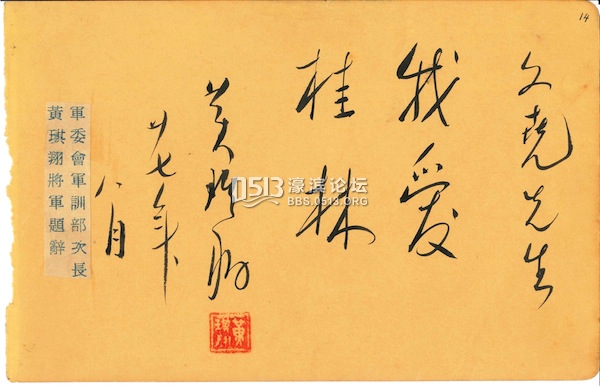 14
文堯先生
我愛
桂林
黃琪翔
廿七年
八月
軍委會軍訓部次長
黃琪翔將軍題辭
黃琪翔
0513 濠滨论坛
BBS.0513.ORG